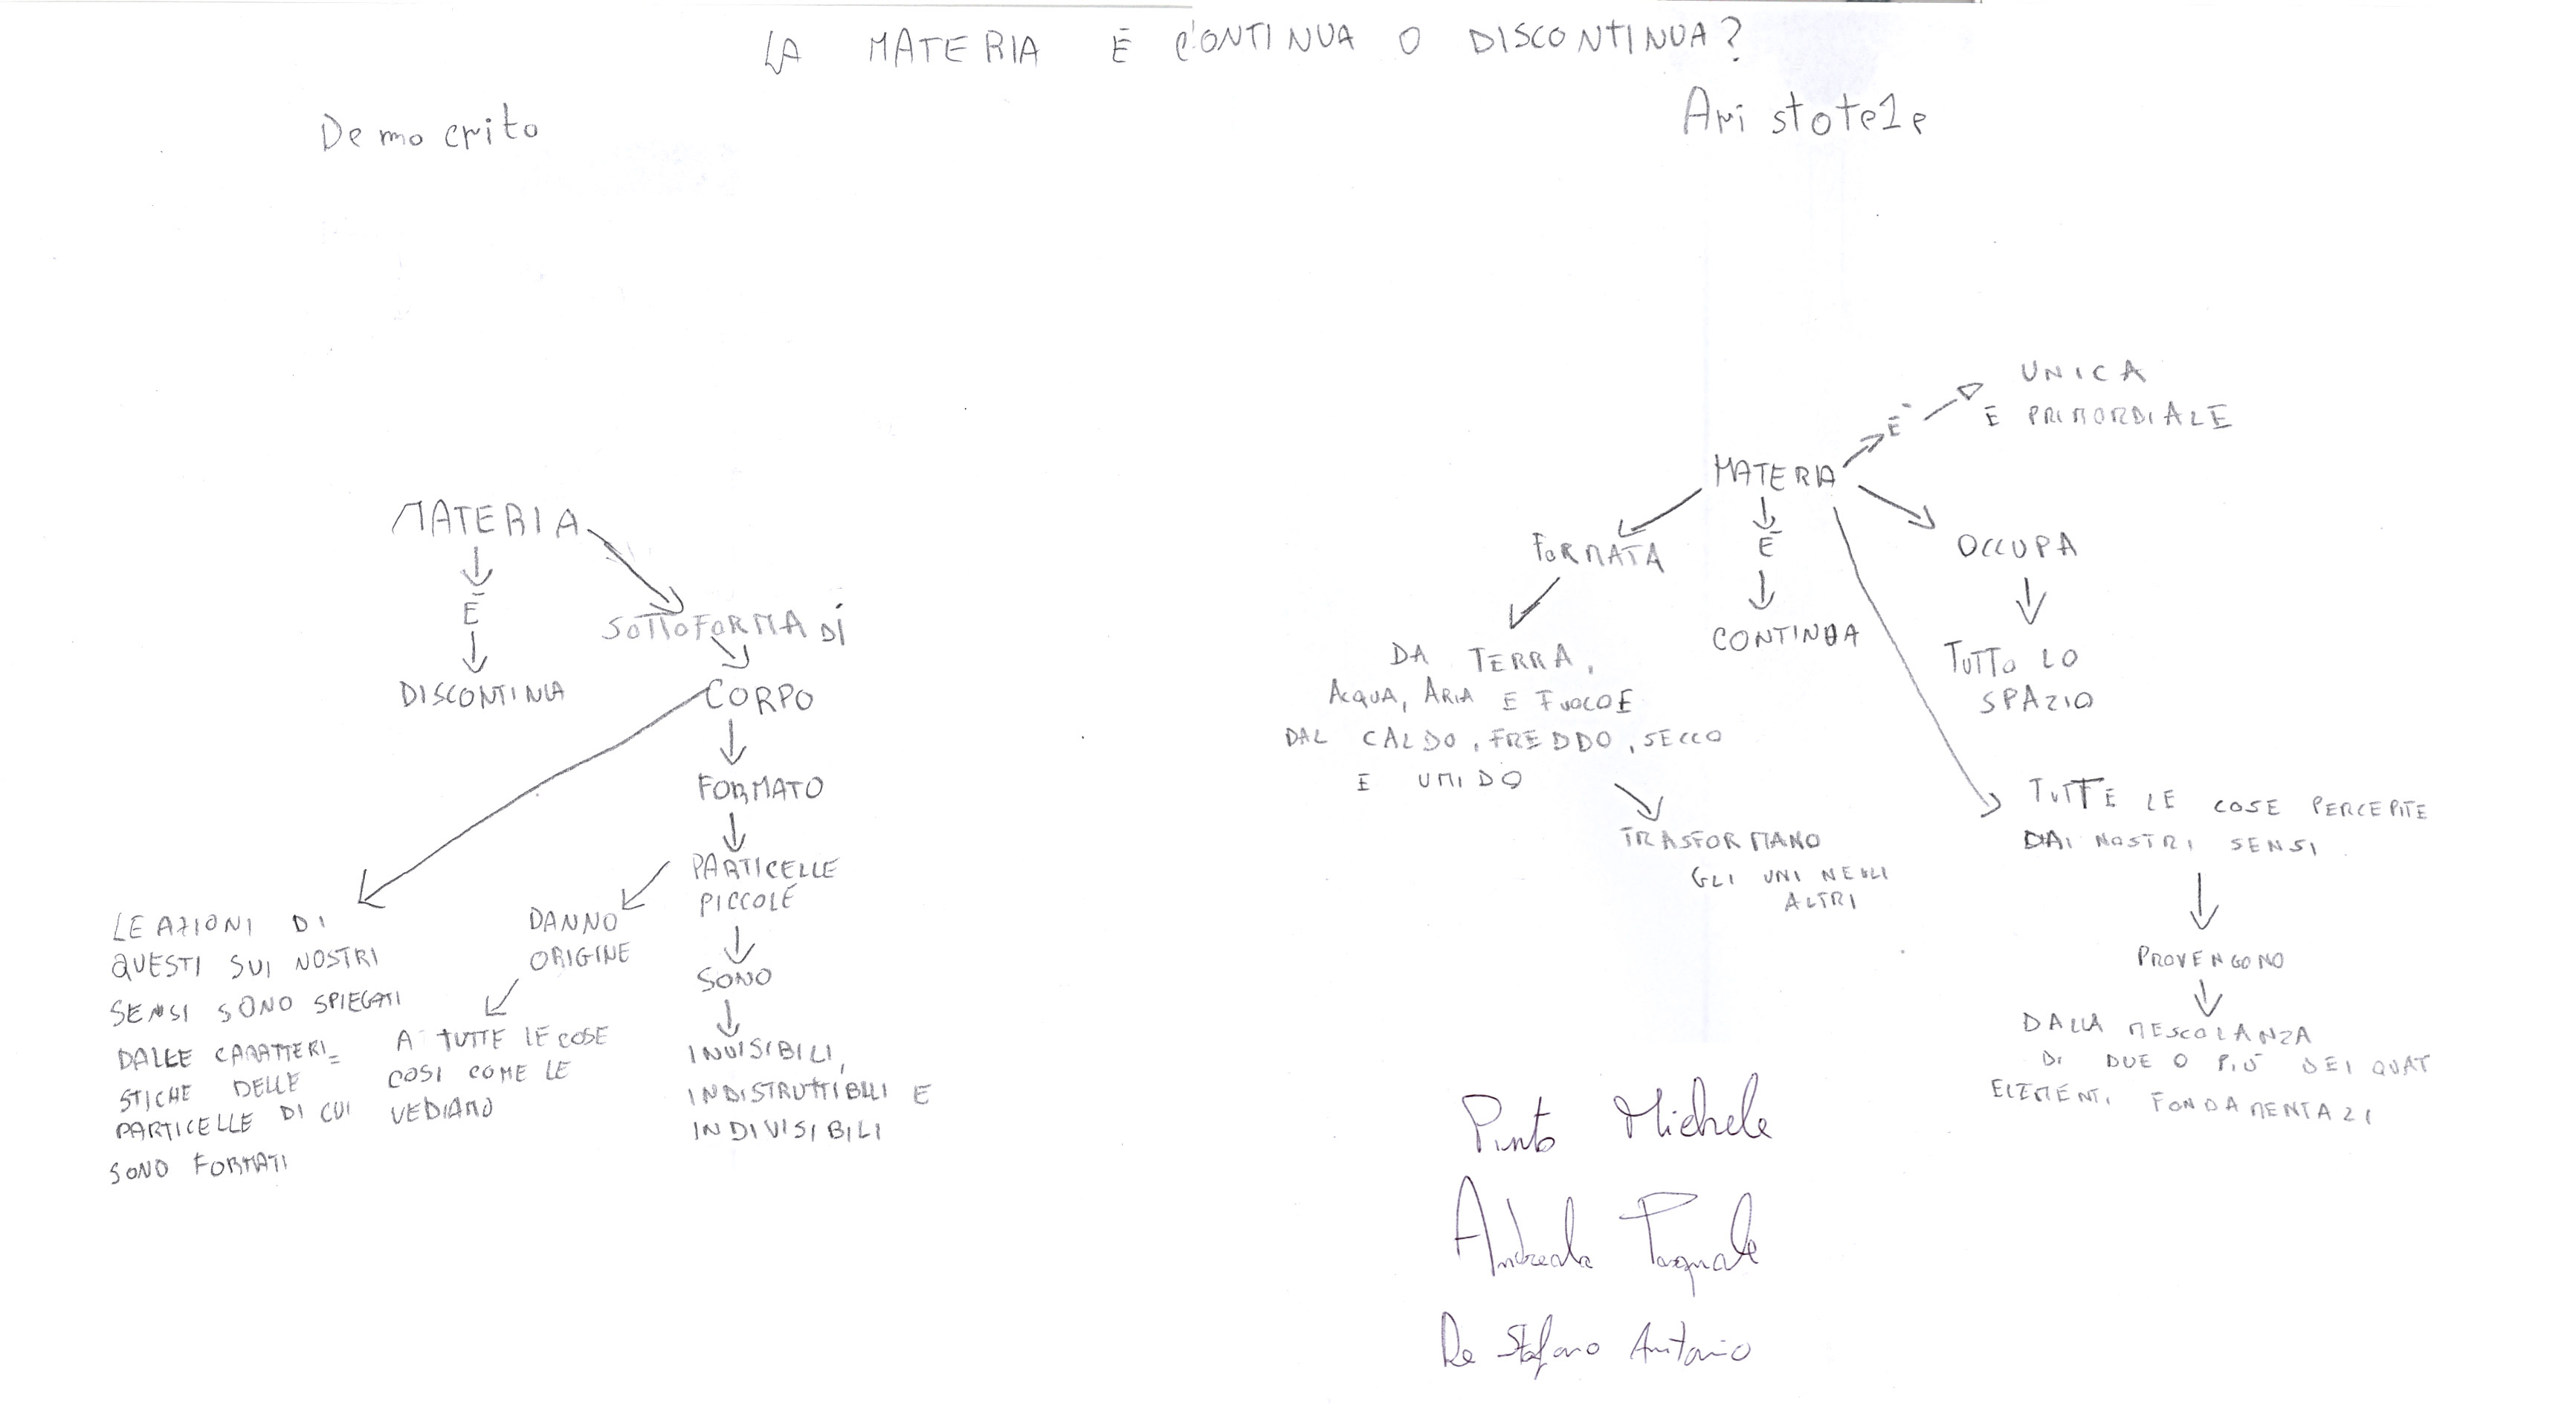 LA MATERIA È CONTINUA O DISCONTINUA?
Democrito
MATERIA
È
DISCONTINUA
SOTTOFORMA DI
CORPO
FORMATO
PARTICELLE
PICCOLE
SONO
INVISIBILI,
INDISTRUTTIBILI E
INDIVISIBILI
DANNO
ORIGINE
A TUTTE LE COSE
COSI COME LE
VEDIAMO
LE AZIONI DI
QUESTI SUI NOSTRI
SENSI SONO SPIEGATI
DALLE CARATTERI_
STICHE DELLE
PARTICELLE DI CUI
SONO FORMATI
Aristotele
MATERIA
È
UNICA
E PRIMORDIALE
FORMATA
DA TERRA,
ACQUA, ARIA E FUOCO E
DAL CALDO, FREDDO, SECCO
E UMIDO
TRASFORMANO
GLI UNI NEGLI
ALTRI
È
CONTINUA
OCCUPA
TUTTO LO
SPAZIO
TUTTE LE COSE PERCEPITE
DAI NOSTRI SENSI
PROVENGONO
DALLA MESCOLANZA
DI DUE O PIÙ DEI QUAT
ELEMENTI FONDAMENTALI
Pinto Michele
Pasquale
De Stefano Antonio